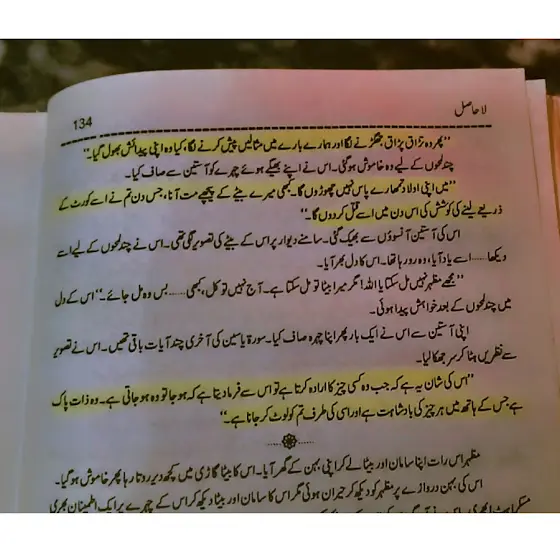 134
لا حاصل
"پھر وہ تڑاق پڑاق جھگڑنے لگا اور ہمارے بارے میں مثالیں پیش کرنے لگا، کیا وہ اپنی پیدائش بھول گیا۔"
چند لمحوں کے لیے وہ خاموش ہو گئی۔ اس نے اپنے بھیگے ہوئے چہرے کو آستین سے صاف کیا۔
"میں اپنی اولاد تمہارے پاس نہیں چھوڑوں گا۔ کبھی میرے بیٹے کے پیچھے مت آنا، جس دن تم نے اسے کورٹ کے
ذریعے لینے کی کوشش کی اس دن میں اسے قتل کر دوں گا۔"
اس کی آستین آنسوؤں سے بھیگ گئی۔ سامنے دیوار پر اس کے بیٹے کی تصویر لگی تھی۔ اس نے چند لمحوں کے لیے اسے
دیکھا......اسے یاد آیا، وہ رو رہا تھا۔ اس کا دل بھر آیا۔
"مجھے مظہر نہیں مل سکتا یا اللہ! مگر میرا بیٹا تو مل سکتا ہے۔ آج نہیں تو کل، کبھی......بس وہ مل جائے۔" اس کے دل
میں چند لمحوں کے بعد خواہش پیدا ہوئی۔
اپنی آستین سے اس نے ایک بار پھر اپنا چہرہ صاف کیا۔ سورۃ یاسین کی آخری چند آیات باقی تھیں۔ اس نے تصویر
سے نظریں ہٹا کر سر جھکا لیا۔
"اس کی شان یہ ہے کہ جب وہ کسی چیز کا ارادہ کرتا ہے تو اس سے فرما دیتا ہے کہ ہو جا تو وہ ہو جاتی ہے۔ وہ ذات پاک
ہے جس کے ہاتھ میں ہر چیز کی بادشاہت ہے اور اسی کی طرف تم کو لوٹ کر جانا ہے۔"
مظہر اس رات اپنا سامان اور بیٹا لے کر اپنی بہن کے گھر آیا۔ اس کا بیٹا گاڑی میں کچھ دیر روتا رہا پھر خاموش ہو گیا۔
اس کی بہن دروازے پر مظہر کو دیکھ کر حیران ہوئی مگر اس کا سامان اور بیٹا دیکھ کر اس کے چہرے پر ایک اطمینان بھری